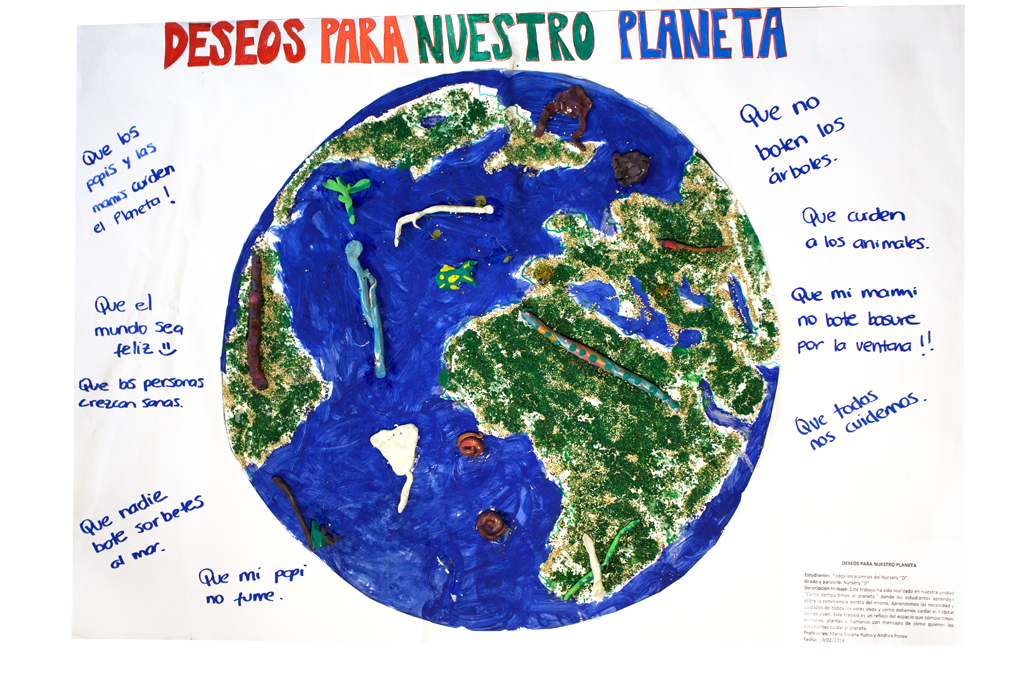 DESEOS PARA NUESTRO PLANETA
Que los
papis y las
mamis cuiden
el Planeta!
Que el
mundo sea
feliz
Que las personas
crezcan sanas.
Que nadie
bote sorbetes
al mar.
Que mi papi
no fume.
Que no
boten los
árboles.
Que cuiden
a los animales.
Que mi mammi
no bote basure
por la ventana!!
Que todos
nos cuidemos.
DESEOS PARA NUESTRO PLANETA
Estudiantes: Todos los alumnos del Nursery "D"
Grado y paralelo: Nursery "D"
Descripción trabajo: Este trabajo ha sido realizado en nuestra unidad
"Como compartimos el planeta," donde los estudiantes aprenden
sobre la convivencia dentro del mismo. Aprendemos las necesidad y
cuidados de todos los seres vivos y como debemos cuidar el hábitat
donde viven. Este trabajo es un reflejo del espacio que compartimos
animales, plantas y humanos con mensajes de cómo quieren los
estudiantes cuidar el planeta.
Profesores: María Susana Rubio y Andrea Ponce
Fecha: